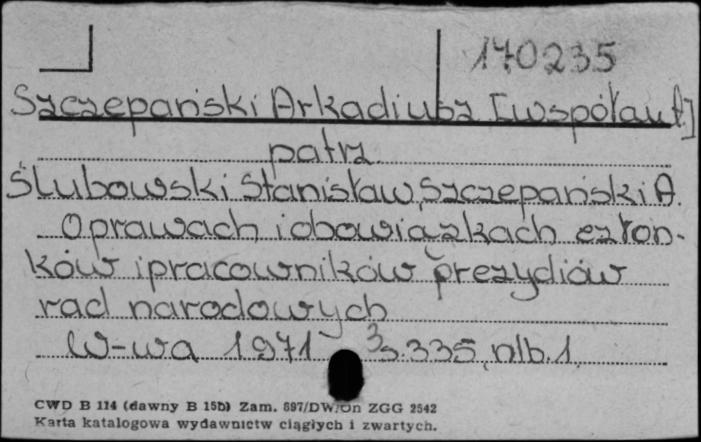 170235
Szczepański Arkadiusz [współaut.]
patrz
Ślubowski Stanisław, Szczepański A.
O prawach i obowiązkach człon-
ków i pracowników prezydiów
rad narodowych
W-wa 1971 s. 335, nlb. 1.
CWD B 114 (dawny B 15b) Zam. 697/DW/Dn ZGG 2542
Karta katalogowa wydawnictw ciągłych i zwartych.